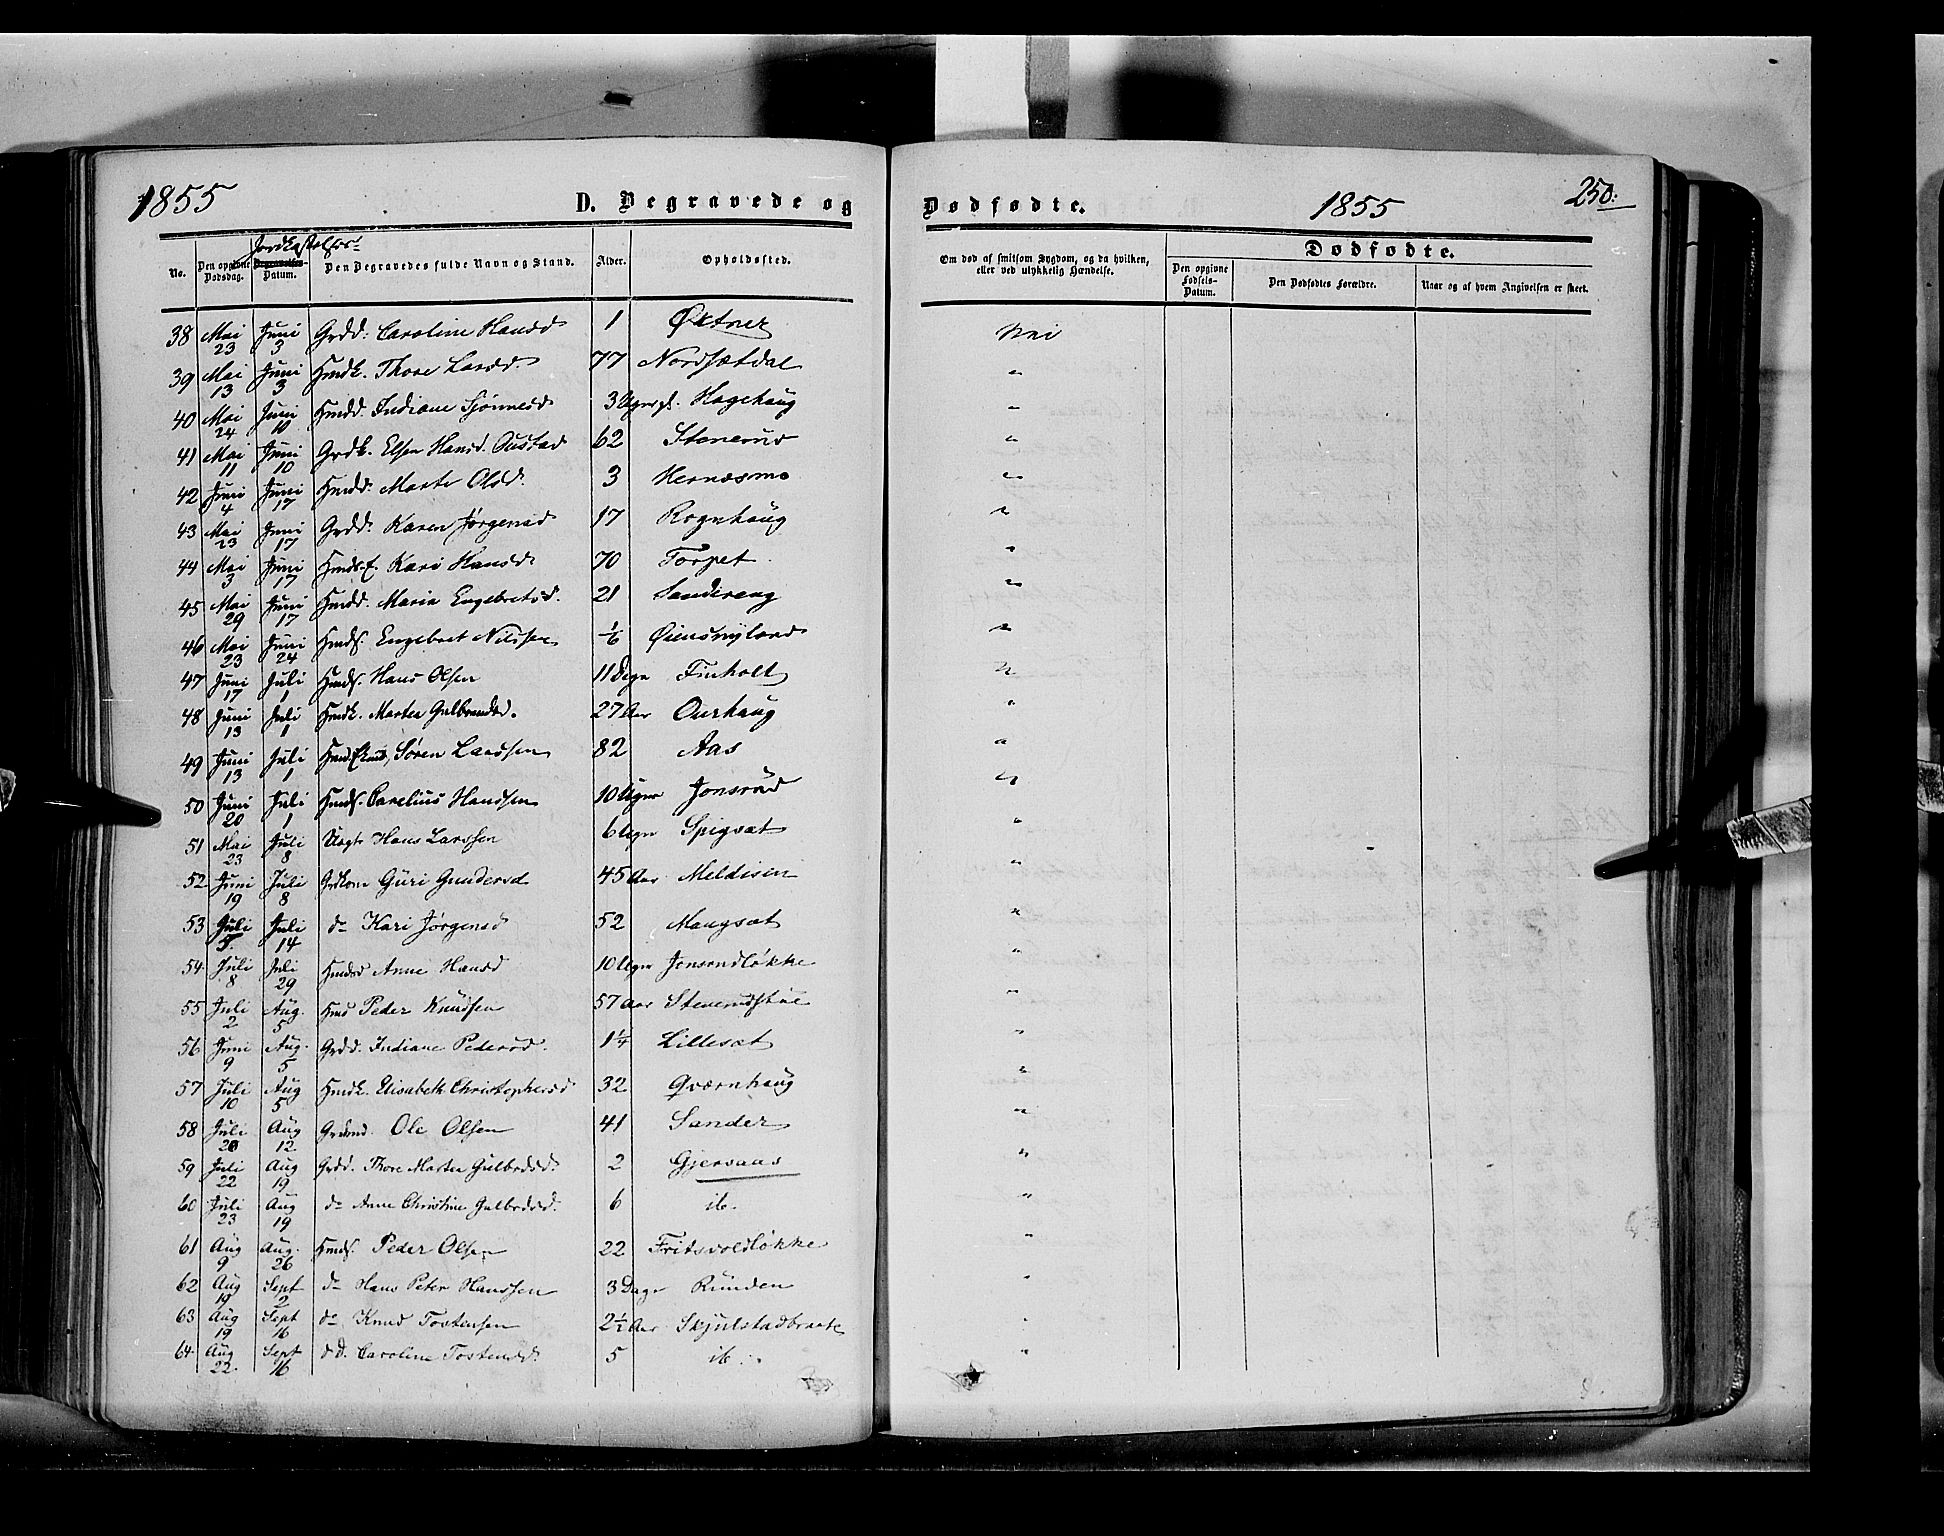 1855 D. Begravede og Dødfødte. 1855 250.
No. Den opgivne Dødsdag. Jordkastelses- Begravelses- Datum. Den Begravedes fulde Navn og Stand. Alder. Opholdssted. Om død af smitsom Sygdom, og da hvilken, eller ved ulykkelig Hændelse. Dødfødte. Den opgivne Fødsels-Datum. Den Dødfødtes Forældre. Naar og af hvem Angivelsen er skeet.
38 Mai 23 Juni 3 Grdd. Caroline Hansd 1 Øktner Nei
39 Mai 13 Juni 3 Hmdk. Thore Larsd. 77 Nordsætdal "
40 Mai 24 Juni 10 Hmdd. Indiane 3 Uger gl. Hagehaug "
41 Mai 11 Juni 10 Grdk. Elsen Hansd. Oustad 62 Stenerud "
42 Juni 4 Juni 17 Hmdd. Marte Olsd. 3 Hernæsmo "
43 Mai 23 Juni 17 Grdd. Karen Jørgensd 17 Rognhaug "
44 Mai 3 Juni 17 Kari Hansd 70 Torpet "
45 Mai 29 Juni 17 Hmdd. Maria Engebretsd. 21 Sandereng "
46 Mai 23 Juni 24 Hmds. Engebret Nilssen 1/6 Øiensnyland "
47 Juni 17 Juli 1 Hmds. Hans Olsen 11 Dage Finholt "
48 Juni 13 Juli 1 Hmdk. Martea Gulbrandsd. 27 Aar Ourhaug "
49 Juni 13 Juli 1 Søren Larssen 82 Aas "
50 Juni 20 Juli 1 Hmds. Carelius Hanssen 10 Uger Jonsrud "
51 Mai 23 Juli 8 Uægt. Hans Larssen 6 Uger Spigsæt "
52 Juni 19 Juli 8 Grdkone Guri Gundersd 45 Aar Meldisen "
53 Juli 5. Juli 14 do Kari Jørgensd 52 Mangsæt "
54. Juli 8 Juli 29 Hmdsd Anne Hansd 10 Uger Jonsrudløkke "
55 Juli 2 Aug. 5 Hmd Peder Knudsen 57 Aar Stenerudstue "
56 Juni 9 Aug. 5 Grdd. Indiane Pedersd. 1 1/4 Lillesæt "
57 Juli 10 Aug 5 Hmdk. Elisabeth Christophersd 32 Qværnhaug "
58 Juli 20 Aug 12 Grdmd. Ole Olsen 41 Sander "
59 Juli 22 Aug 19 Grdd. Thore Martea Gulbrdsd. 2 Gjersaas "
60 Juli 23 Aug 19 do Anne Christine Gulbrdsd. 6 ib. "
61 Aug 9 Aug. 26 Hmds. Peder Olsen 22 Fritsvoldløkke "
62 Aug 19 Sept 2 do Hans Peter Hanssen 3 Dage Runden "
63 Aug 19 Sept 16 do Knud Tostensen 2 1/2 Aar Skjulstadbraate "
64. Aug 22. Sept 16 d.d. Caroline Tostensd. 5 ib. "